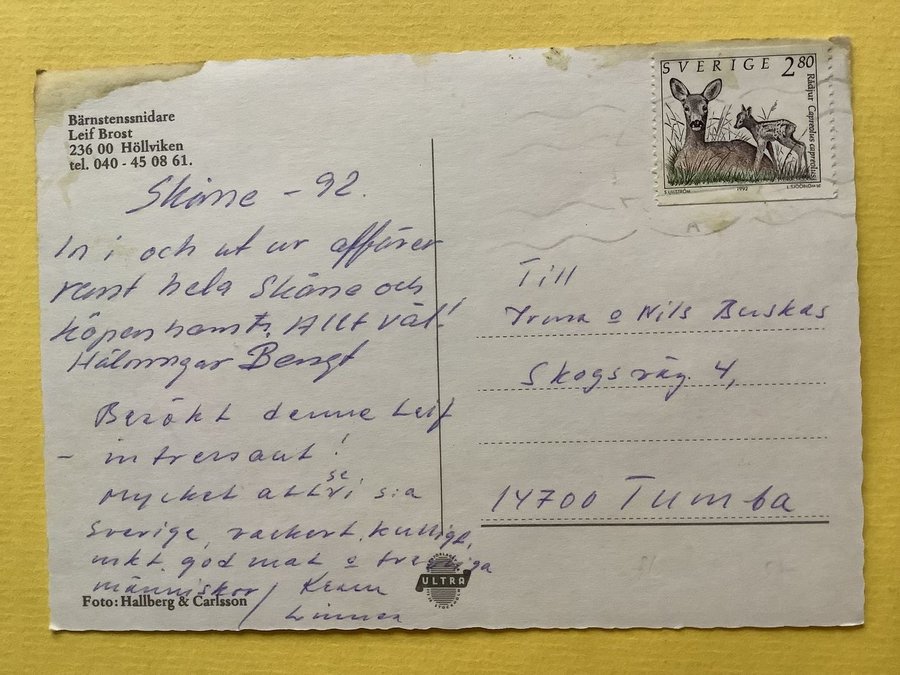 Bärnstenssnidare
Leif Brost
236 00 Höllviken
tel. 040 - 45 08 61.
SVERIGE 2 80
Rådjur Capreolus capreolus
1992
Skåne - 92.
In i och ut ur affärer
runt hela Skåne och
Köpenhamn. Allt väl!
Hälsningar Bengt
Besökt denne Leif
- intressant!
Mycket att se i s:a
Sverige, vackert, kulligt,
mkt god mat o trevliga
människor/
Linnea
Foto: Hallberg & Carlsson
ULTRA
Till
Irma o Nils Buskas
Skogsväg. 4,
14700 Tumba